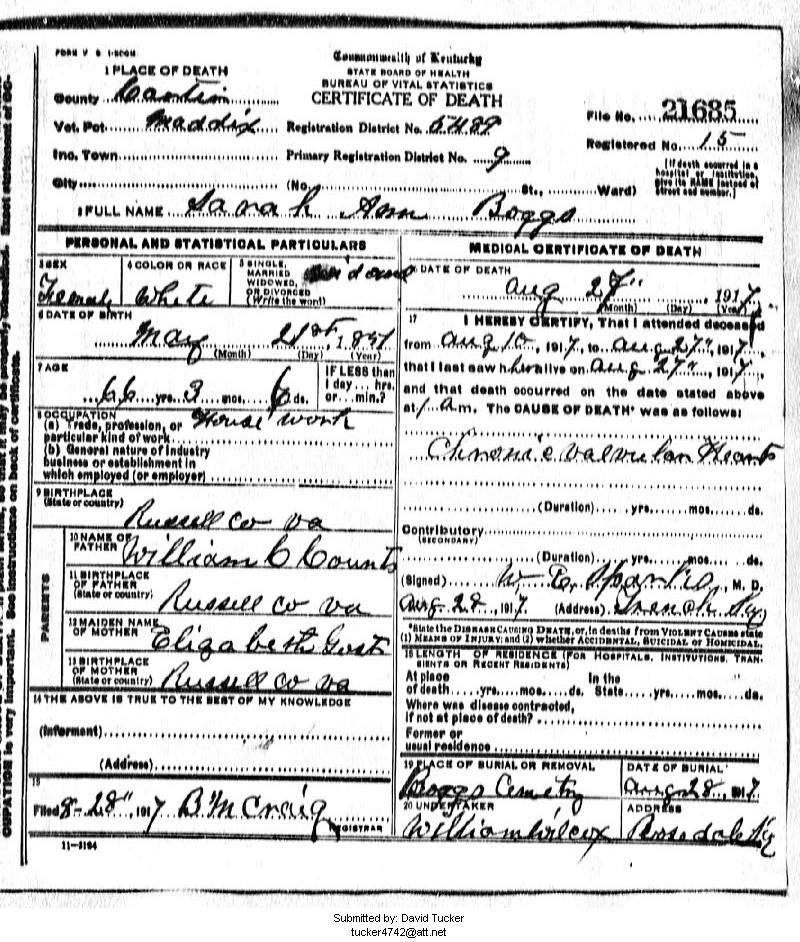 FORM V S 1-50M
Commonwealth of Kentucky
STATE BOARD OF HEALTH
BUREAU OF VITAL STATISTICS
CERTIFICATE OF DEATH
1 PLACE OF DEATH
County Carter
Vot. Pct. Maddix Registration District No. 5489
File No. 21685
Inc. Town Primary Registration District No. 9
Registered No. 15
City (No. St., Ward)
[If death occurred in a hospital or institution, give its NAME instead of street and number.]
2 FULL NAME Sarah Ann Boggs
PERSONAL AND STATISTICAL PARTICULARS
3 SEX Female
4 COLOR OR RACE White
5 SINGLE, MARRIED WIDOWED, OR DIVORCED (Write the word)
6 DATE OF BIRTH
May 21st, 1851
(Month) (Day) (Year)
7 AGE
66 yrs. 3 mos. 6 ds.
IF LESS than 1 day... hrs. or... min.?
8 OCCUPATION
(a) Trade, profession, or particular kind of work House work
(b) General nature of industry business or establishment in which employed (or employer)
9 BIRTHPLACE
(State or country)
Russell co va
PARENTS
10 NAME OF FATHER William C Counts
11 BIRTHPLACE OF FATHER
(State or country) Russell co va
12 MAIDEN NAME OF MOTHER Elizabeth
13 BIRTHPLACE OF MOTHER
(State or country) Russell co va
14 THE ABOVE IS TRUE TO THE BEST OF MY KNOWLEDGE
(Informant)
(Address)
15
Filed 8-28", 1917 B M Craig
REGISTRAR
11-3184
MEDICAL CERTIFICATE OF DEATH
16 DATE OF DEATH
Aug 27", 1917
(Month) (Day) (Year)
17 I HEREBY CERTIFY, That I attended deceased
from Aug 10, 1917, to Aug 27", 1917,
that I last saw her alive on Aug 27", 1917,
and that death occurred on the date stated above
at 1 A.m. The CAUSE OF DEATH* was as follows:
Chronic valvular Heart
(Duration) yrs. mos. ds.
Contributory
(SECONDARY)
(Duration) yrs. mos. ds.
(Signed) W. E. , M. D.
Aug 28, 1917 (Address) Ky
*State the DISEASE CAUSING DEATH, or, in deaths from VIOLENT CAUSES state
(1) MEANS OF INJURY; and (2) whether ACCIDENTAL, SUICIDAL or HOMICIDAL.
18 LENGTH OF RESIDENCE (FOR HOSPITALS, INSTITUTIONS, TRANSIENTS OR RECENT RESIDENTS)
At place of death yrs. mos. ds. In the State yrs. mos. ds.
Where was disease contracted,
if not at place of death?
Former or
usual residence
19 PLACE OF BURIAL OR REMOVAL
Boggs Cemetry
DATE OF BURIAL
Aug 28, 1917
20 UNDERTAKER
William Wilcox
ADDRESS
Rosedale Ky
Submitted by: David Tucker
tucker4742@att.net